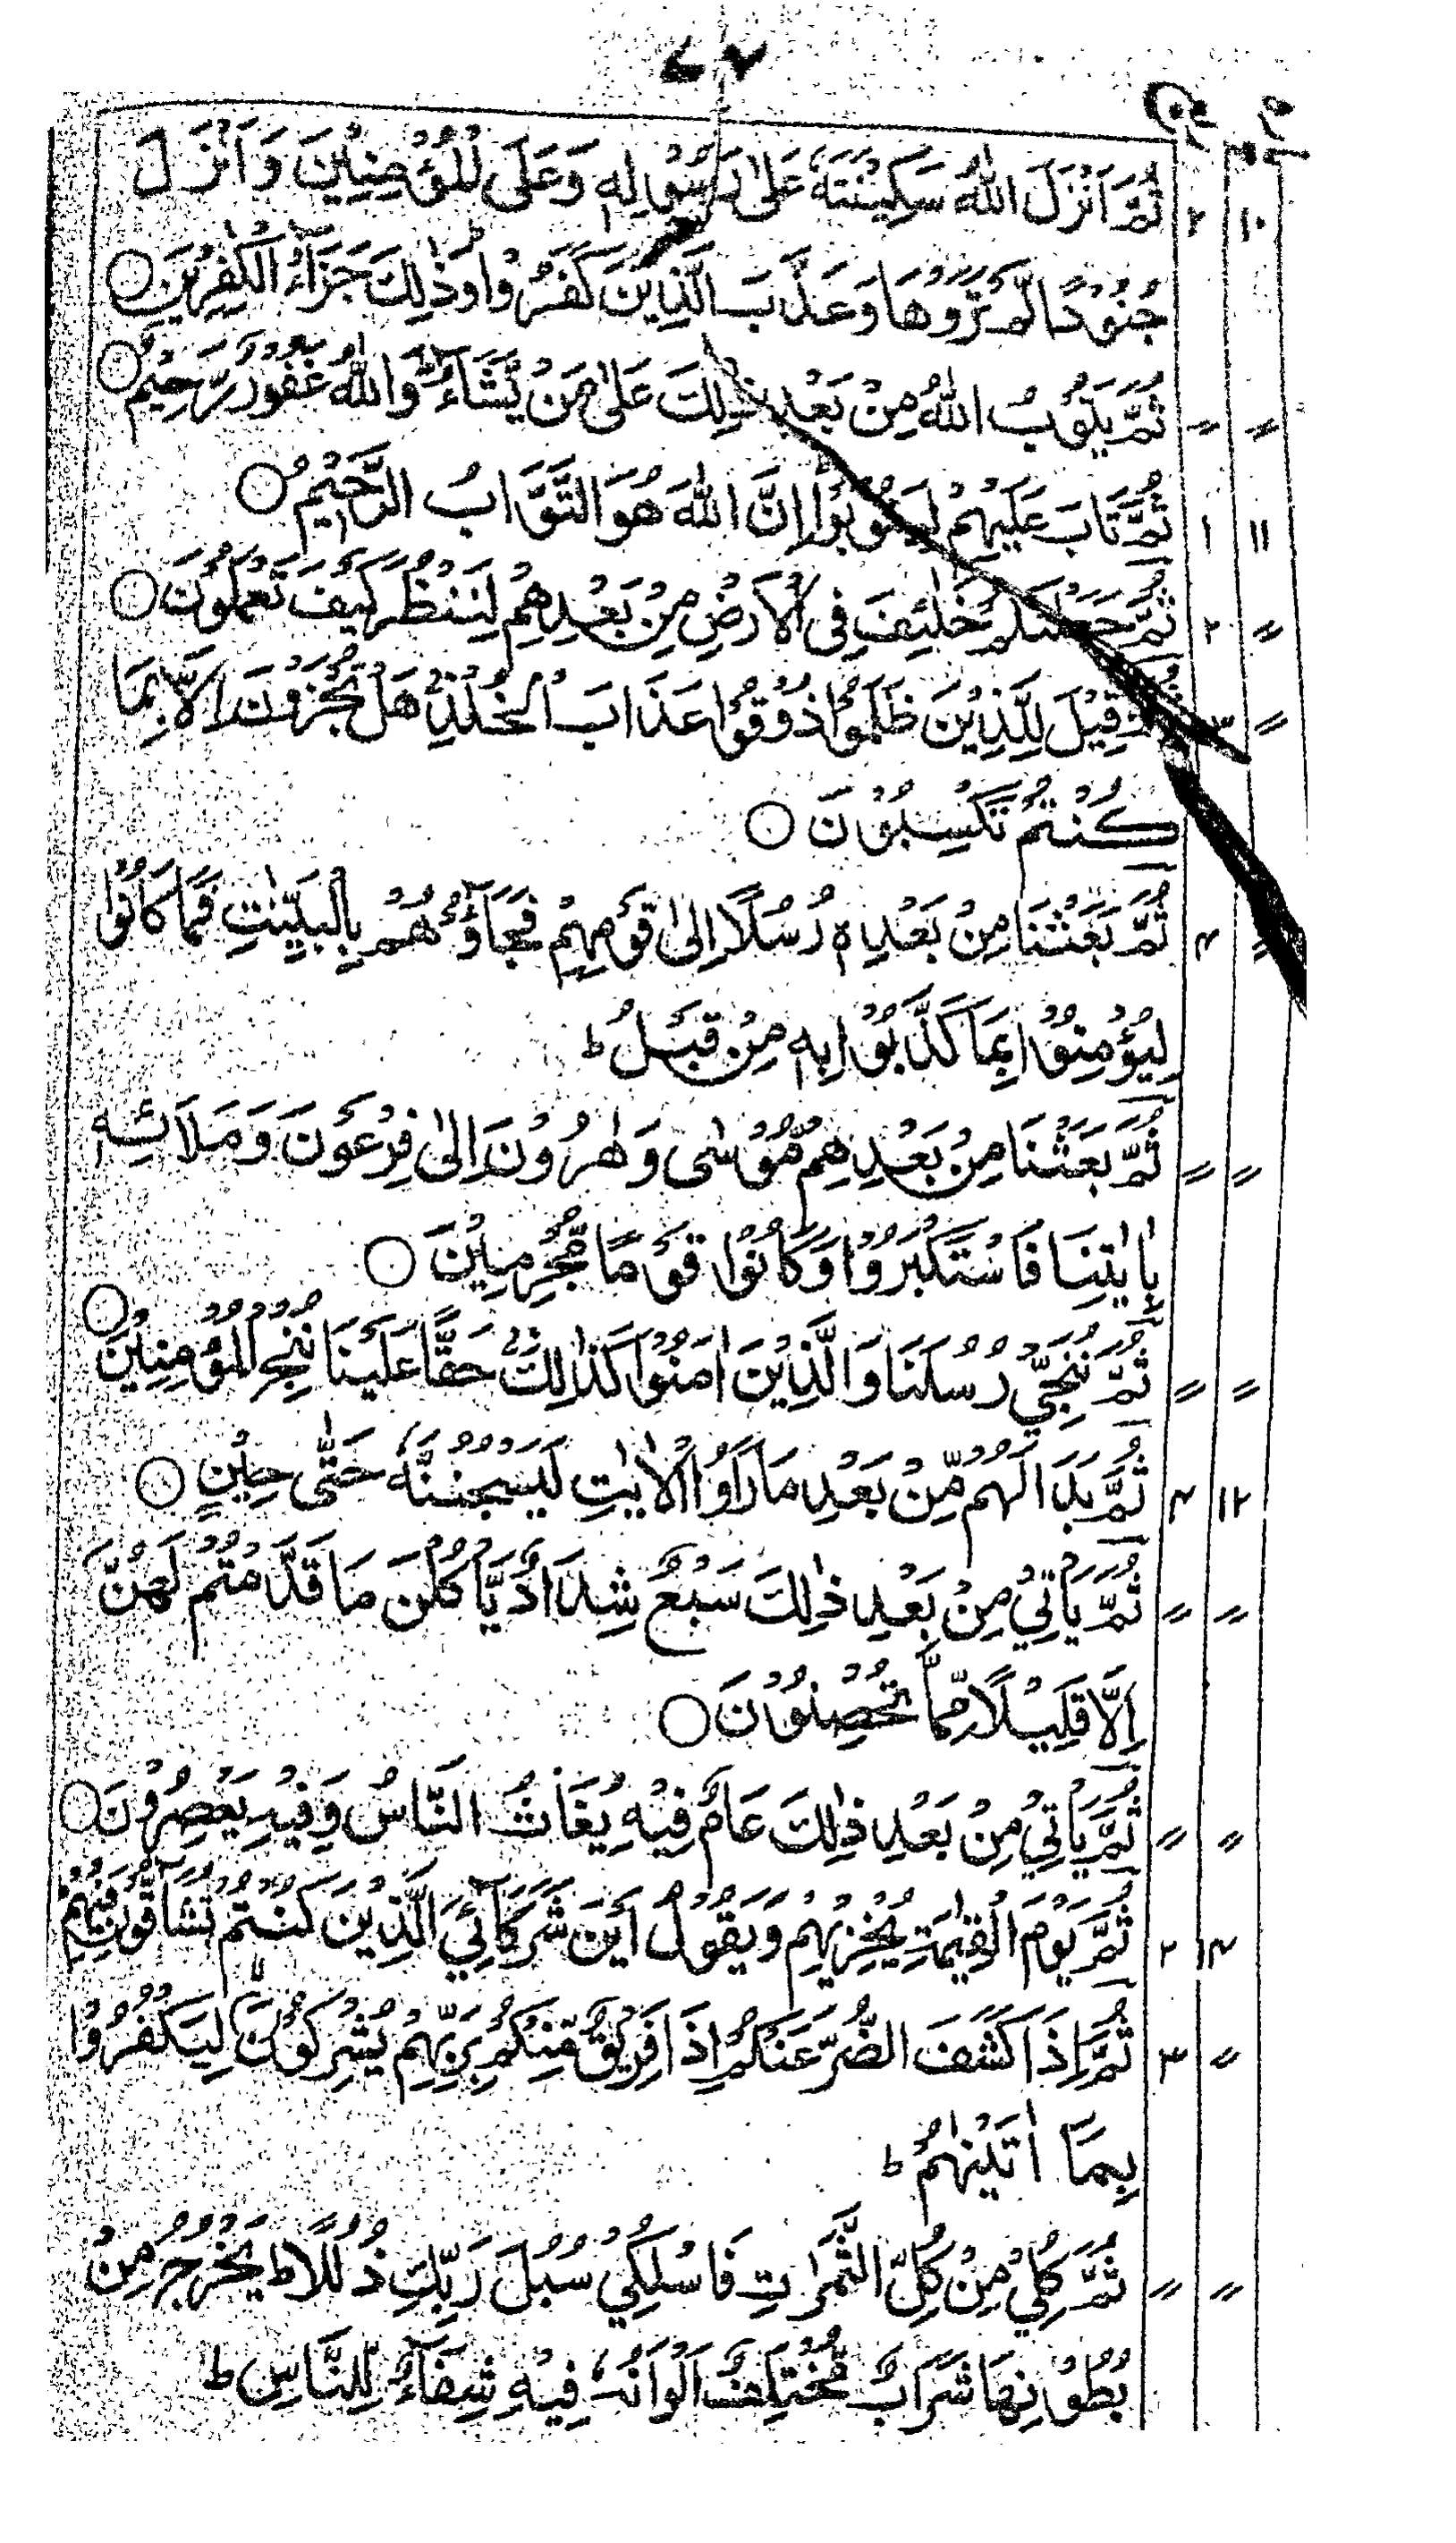 ٧٢
١٠ ٢ ثُمَّ اَنْزَلَ اللّٰهُ سَكِيْنَتَهٗ عَلٰى رَسُوْلِهٖ وَعَلَى الْمُؤْمِنِيْنَ وَاَنْزَلَ
جُنُوْدًا لَّمْ تَرَوْهَا وَعَذَّبَ الَّذِيْنَ كَفَرُوْا ؕ وَذٰلِكَ جَزَآءُ الْكٰفِرِيْنَ ○
〃 〃 ثُمَّ يَتُوْبُ اللّٰهُ مِنْۢ بَعْدِ ذٰلِكَ عَلٰى مَنْ يَّشَآءُ ؕ وَاللّٰهُ غَفُوْرٌ رَّحِيْمٌ ○
١١ ١ ثُمَّ تَابَ عَلَيْهِمْ لِيَتُوْبُوْا اِنَّ اللّٰهَ هُوَ التَّوَّابُ الرَّحِيْمُ ○
〃 ٢ ثُمَّ جَعَلْنٰكُمْ خَلٰٓئِفَ فِى الْاَرْضِ مِنْۢ بَعْدِهِمْ لِنَنْظُرَ كَيْفَ تَعْمَلُوْنَ ○
〃 ٣ ثُمَّ قِيْلَ لِلَّذِيْنَ ظَلَمُوْا ذُوْقُوْا عَذَابَ الْخُلْدِ ۚ هَلْ تُجْزَوْنَ اِلَّا بِمَا
كُنْتُمْ تَكْسِبُوْنَ ○
〃 ٤ ثُمَّ بَعَثْنَا مِنْۢ بَعْدِهٖ رُسُلًا اِلٰى قَوْمِهِمْ فَجَآءُوْهُمْ بِالْبَيِّنٰتِ فَمَا كَانُوْا
لِيُؤْمِنُوْا بِمَا كَذَّبُوْا بِهٖ مِنْ قَبْلُ ؕ
〃 〃 ثُمَّ بَعَثْنَا مِنْۢ بَعْدِهِمْ مُّوْسٰى وَهٰرُوْنَ اِلٰى فِرْعَوْنَ وَمَلَا۟ئِهٖ
بِاٰيٰتِنَا فَاسْتَكْبَرُوْا وَكَانُوْا قَوْمًا مُّجْرِمِيْنَ ○
〃 〃 ثُمَّ نُنَجِّيْ رُسُلَنَا وَالَّذِيْنَ اٰمَنُوْا كَذٰلِكَ ۚ حَقًّا عَلَيْنَا نُنْجِ الْمُؤْمِنِيْنَ ○
١٢ ٤ ثُمَّ بَدَا لَهُمْ مِّنْۢ بَعْدِ مَا رَاَوُا الْاٰيٰتِ لَيَسْجُنُنَّهٗ حَتّٰى حِيْنٍ ○
〃 〃 ثُمَّ يَاْتِيْ مِنْۢ بَعْدِ ذٰلِكَ سَبْعٌ شِدَادٌ يَّاْكُلْنَ مَا قَدَّمْتُمْ لَهُنَّ
اِلَّا قَلِيْلًا مِّمَّا تُحْصِنُوْنَ ○
〃 〃 ثُمَّ يَاْتِيْ مِنْۢ بَعْدِ ذٰلِكَ عَامٌ فِيْهِ يُغَاثُ النَّاسُ وَفِيْهِ يَعْصِرُوْنَ ○
١٤ ٢ ثُمَّ يَوْمَ الْقِيٰمَةِ يُخْزِيْهِمْ وَيَقُوْلُ اَيْنَ شُرَكَآئِيَ الَّذِيْنَ كُنْتُمْ تُشَآقُّوْنَ فِيْهِمْ
〃 ٣ ثُمَّ اِذَا كَشَفَ الضُّرَّ عَنْكُمْ اِذَا فَرِيْقٌ مِّنْكُمْ بِرَبِّهِمْ يُشْرِكُوْنَ لِيَكْفُرُوْا
بِمَا اٰتَيْنٰهُمْ ؕ
〃 〃 ثُمَّ كُلِيْ مِنْ كُلِّ الثَّمَرٰتِ فَاسْلُكِيْ سُبُلَ رَبِّكِ ذُلُلًا ؕ يَخْرُجُ مِنْۢ
بُطُوْنِهَا شَرَابٌ مُّخْتَلِفٌ اَلْوَانُهٗ فِيْهِ شِفَآءٌ لِّلنَّاسِ ؕ